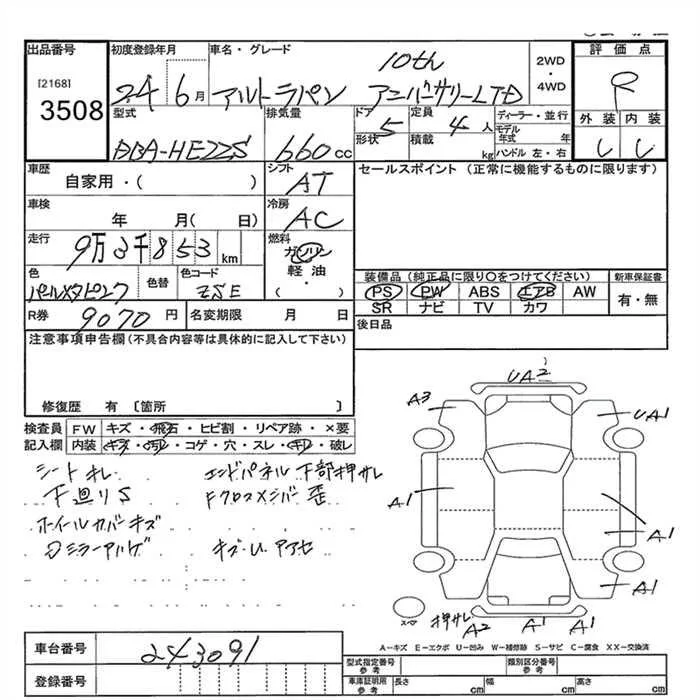 出品番号 初度登録年月 車名・グレード 2WD・4WD 評価点
[2168] 10th
3508 24 6月 アルトラパン アニバーサリーLTD R
型式 排気量 ドア形状 5 定員 4人 積載 kg ディーラー・並行 モデル年式 年 ハンドル 左・右 外装 内装
DBA-HE22S 660cc
車歴 シフト セールスポイント (正常に機能するものに限ります)
自家用・( ) AT
車検 冷房
年 月( 日) AC
走行 9万3千853km 燃料 ガソリン
軽油・
( )
色 色替 色コード 装備品(純正品に限り○をつけてください) 新車保証書
ZSE PS PW ABS エアB AW 有・無
SR ナビ TV カワ
R券 9070円 名変期限 月 日 後日品
注意事項申告欄(不具合内容等は具体的に記入して下さい)
修復歴 有 〔箇所 〕
検査員記入欄 FW キズ・飛石・ヒビ割・リペア跡・×要
内装 キズ・汚れ・コゲ・穴・スレ・キレ・破レ
シートキレ エンドパネル下部押サレ
下廻りS Fクロスメンバー歪
ホイールカバーキズ
Dミラーアルゲ キズ・U・アアセ
UA2
A3 UA1
A1 A1
A1
スペア 押サレ A2 A1 A1
A-キズ E-エクボ U-凹み W-補修跡 S-サビ C-腐食 XX-交換済
車台番号 243091
登録番号
型式指定番号 参考 類別区分番号 参考
車庫証明用 参考 長さ cm 幅 cm 高さ cm